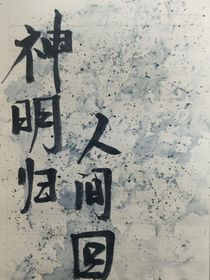 神明归
人间回